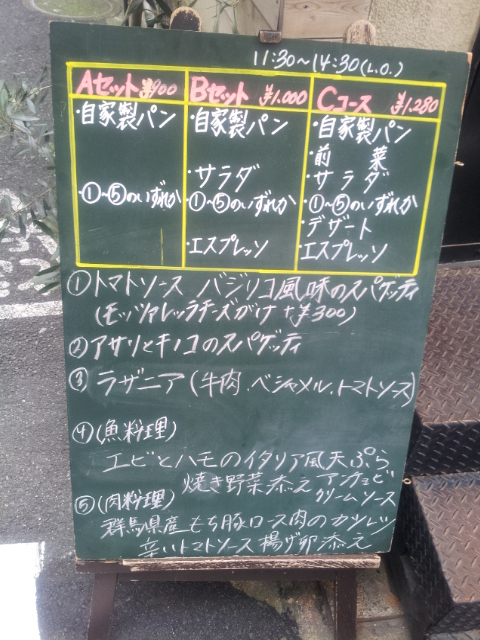 11:30~14:30(L.O.)
Aセット ¥900 Bセット ¥1.000 Cコース ¥1.280
・自家製パン ・自家製パン ・自家製パン
・前菜
・サラダ ・サラダ
・①~⑤のいずれか ・①~⑤のいずれか ・①~⑤のいずれか
・デザート
・エスプレッソ ・エスプレッソ
①トマトソース バジリコ風味のスパゲッティ
(モッツァレッラチーズがけ +¥300)
②アサリとキノコのスパゲッティ
③ラザニア(牛肉、ベシャメル、トマトソース)
④(魚料理)
エビとハモのイタリア風天ぷら
焼き野菜添え アンチョビクリームソース
⑤(肉料理)
群馬県産もち豚ロース肉のカツレツ
辛いトマトソース 揚げ卵添え